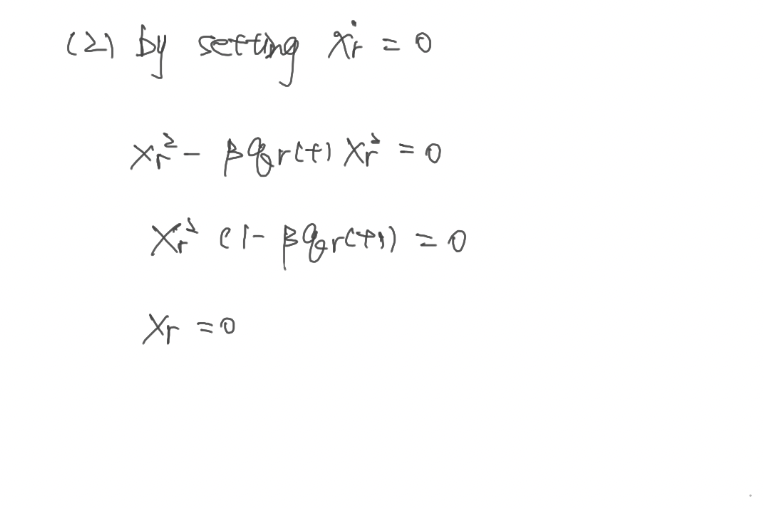 (2) by setting ẋr = 0
xr² - βqr(t) xr² = 0
xr² (1 - βqr(t)) = 0
xr = 0